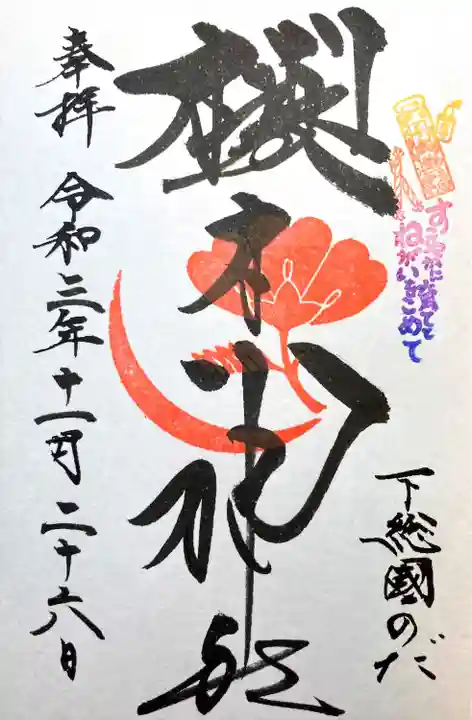 すこやかに育てて
ねがいをこめて
下総國のだ
櫻木神社
奉拝 令和三年十一月二十六日